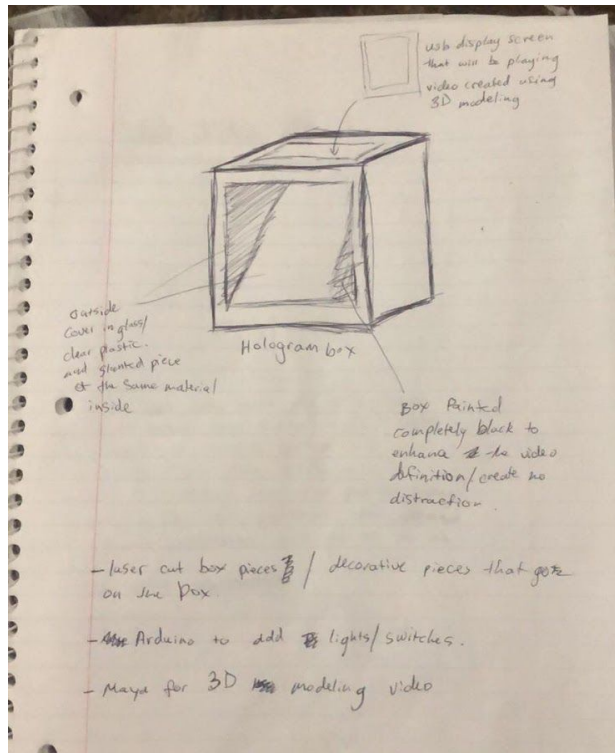 usb display screen
that will be playing
video created using
3D modeling
outside
cover in glass/
clear plastic.
and slanted piece
of the same material
inside
Hologram box
Box Painted
completely black to
enhance the video
definition/create no
distraction.
- laser cut box pieces / decorative pieces that goes
on the box
- Arduino to add lights/switches.
- Maya for 3D modeling video